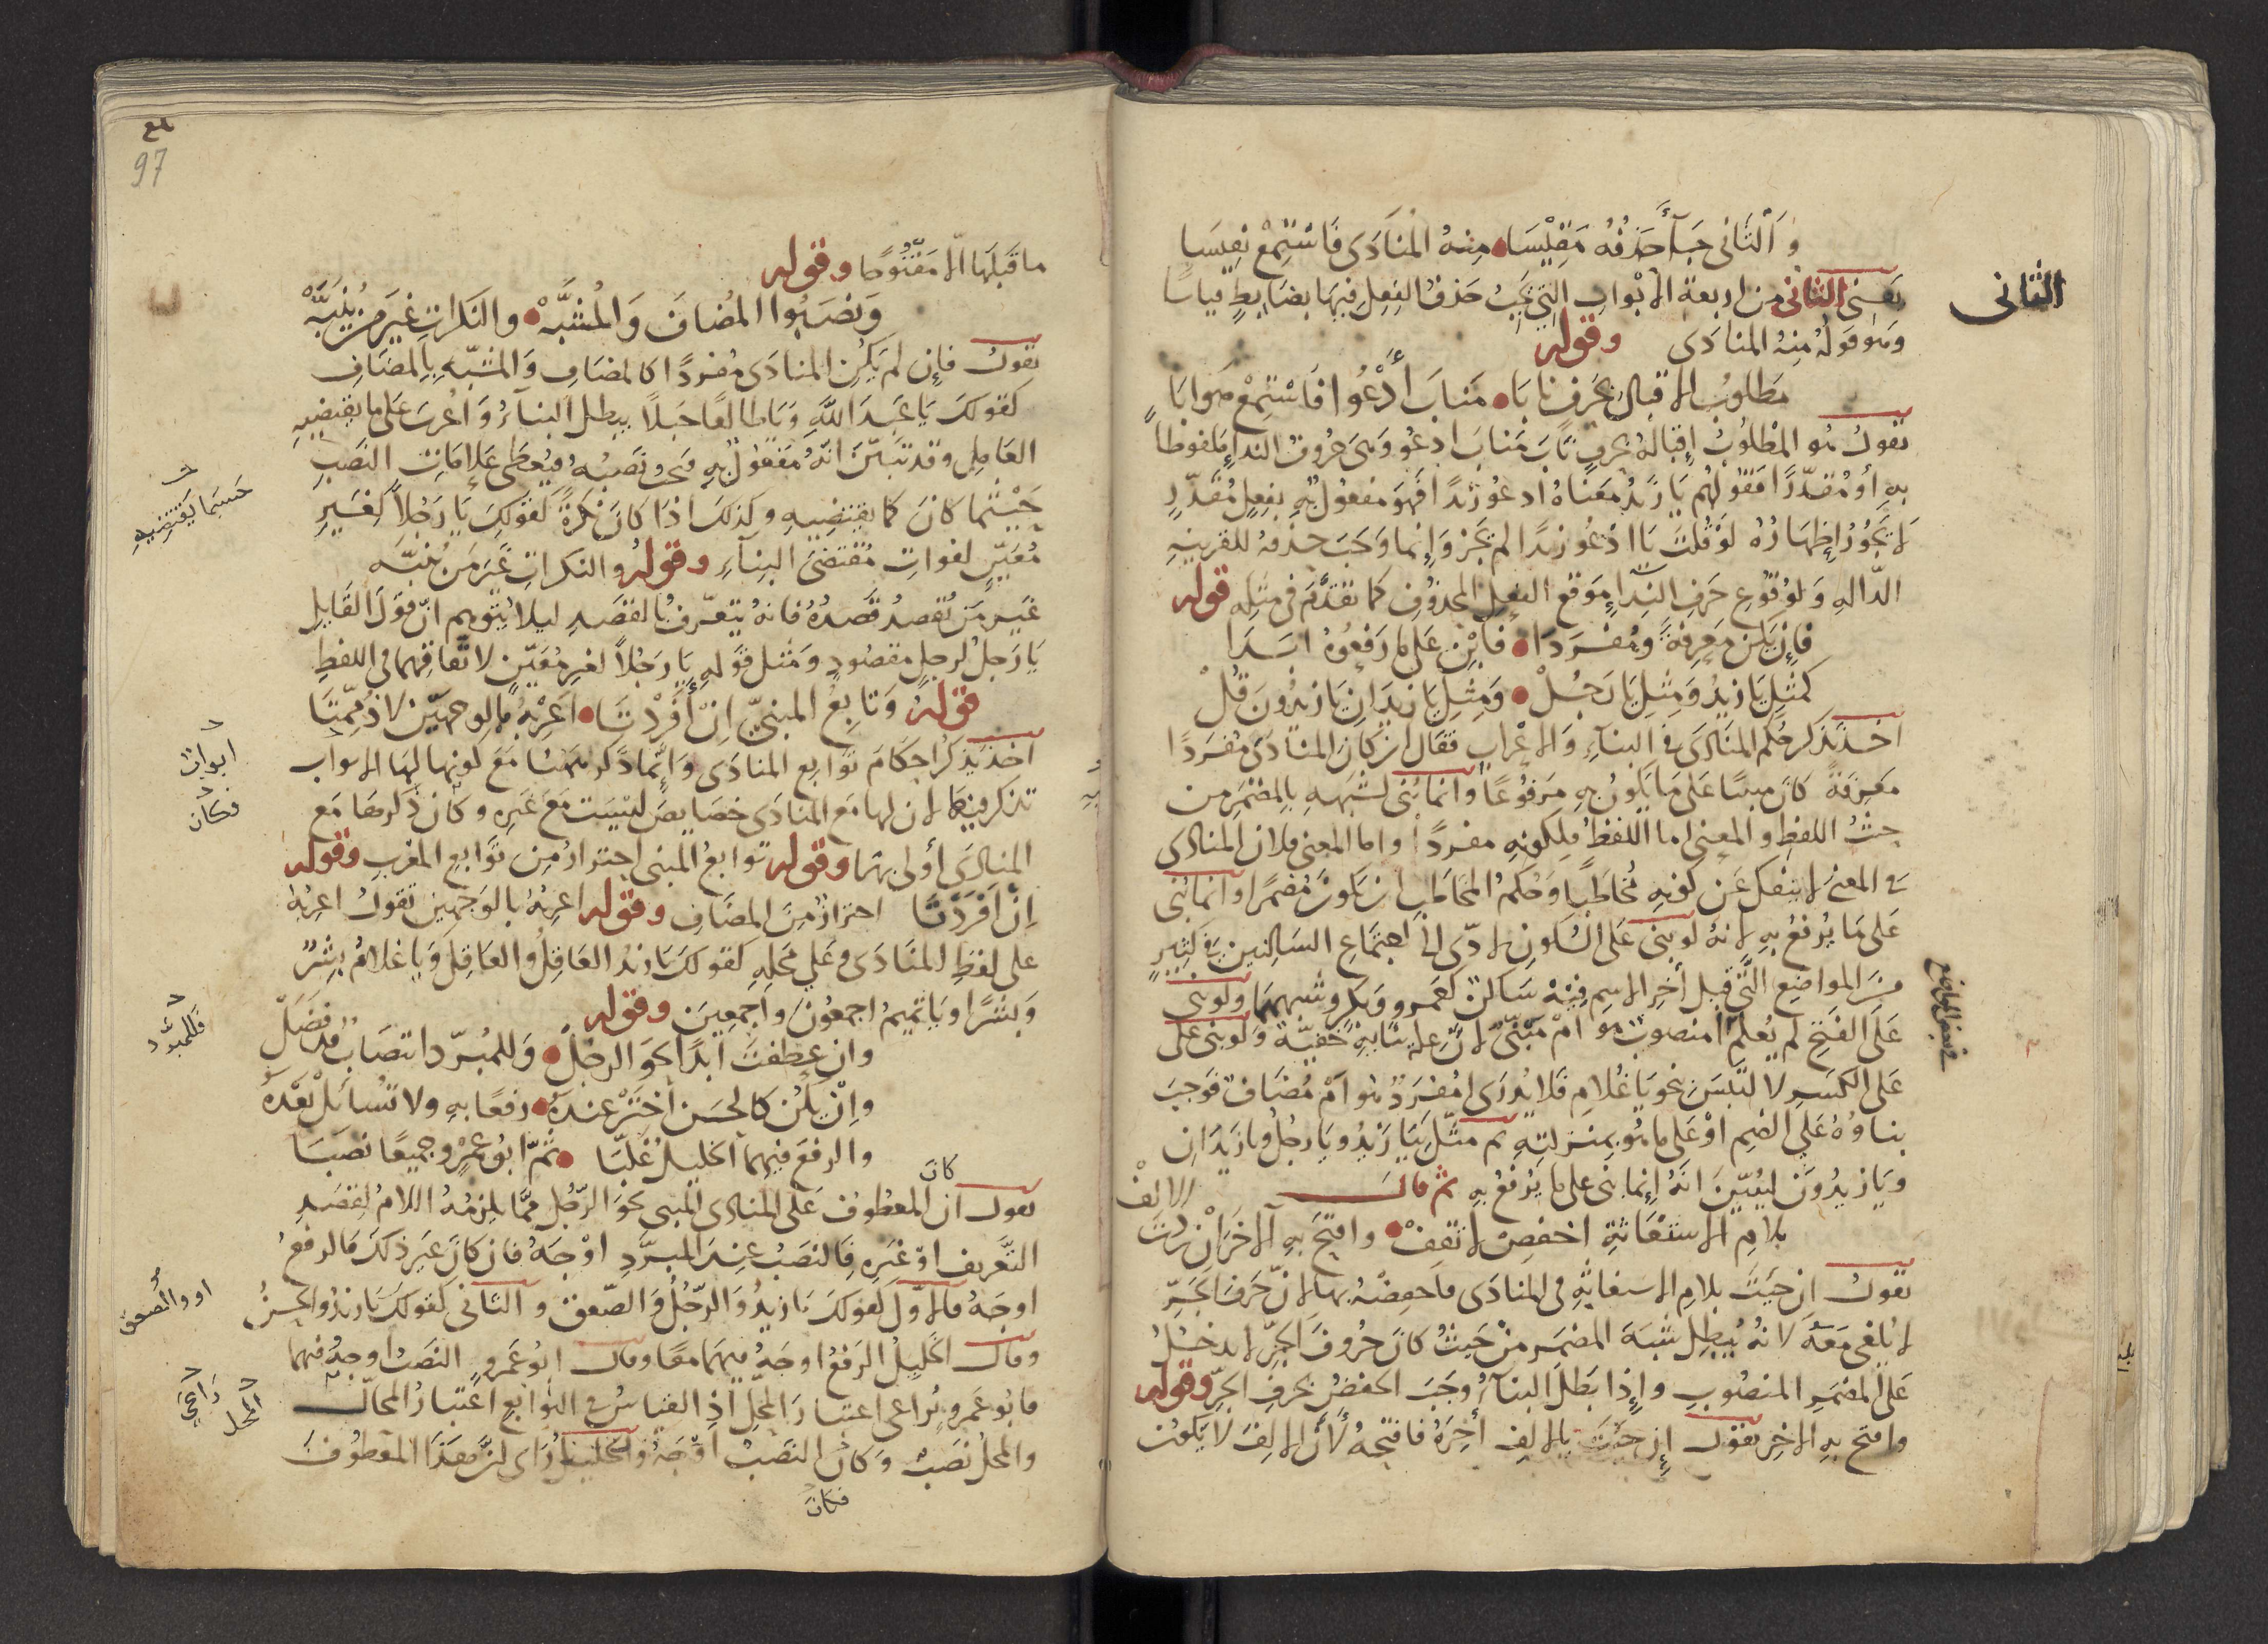 وَالثَّانى جَآ حَذفُهُ مَقِيْسَا • مِنهُ المُنَادَى فَاسْتَمِعْ نفِيسَا
يَعنى الثانى من اربعة الأبْوابِ التى يَجبُ حَذفُ الفِعلِ فِيهَا بضَابِطٍ قياسًا
الثانى
وَهو قولهُ مِنهُ المنادَى وقوله
مَطلوبُ الاقبالِ بحَرفٍ نابَا • مَنابَ أدْعُوا فَاسْتمِعْ صَوابَا
تقولُ هُو المطْلوُبُ إقبالهُ بحرفٍ نابَ مَنابَ ادعُو وَهىَ حروفُ الندإِ ملفوظاً
بهِ أو مُقدّرًا فقولهُم يَا زَيدُ معَناهُ ادعُو زيدًا فهوَ مفعولٌ بهِ بفِعلٍ مُقَدّرٍ
لا يَجُوزُ إظهَارُهُ لوْ قُلتَ يَا ادْعُو زيدًا لم يَجز وَإِنما وَجَبَ حذفهُ للقرينهِ
الدّالهِ وَلوُقوُعِ حَرفِ النِّداءِ مَوقعَ الفعلِ المحذوُفِ كما تقدَّمَ فى مثلِهِ قوله
فإِن يَكن مَعرِفةً ومُفْرَدَا • فابْنِ عَلى مَا رَفعُوهُ ابَدَا
كمثلِ يَا زيدُ وَمثلِ يَا رَجُلْ • وَمثلِ يَا زيدَانِ يَا زيدُونَ قُلْ
اخذ يَذكر حُكم المنَادَى فى البنآءِ وَالاعْرابِ فقالَ ان كانَ المنادَى مُفرَدًا
مَعرفةً كانَ مبنيًا عَلى مَا يَكونُ بهِ مَرفوُعًا وانما بُنى لشبَههِ بالمضْمَرِ من
حيثُ اللفظِ والمعنى اما اللفظُ فلِكونِهِ مفردًا واما المعنى فلان المنادى
فى المعنى لا ينفكّ عَن كونِهِ مُخاطَبًا وَحُكمُ المخاطَبِ ان يَكونَ مُضمَرًا وانما بُنى
عَلى مَا يُرفعُ بهِ لانهُ لو بنى عَلى السُّكونِ لادّى الى اجتماعِ السّاكنين فى كثيرٍ
منَ المواضِعِ الَّتى قبل آخرِ الاسمِ فيهِ سَاكنٌ كعَمرو وَبكرٍ وشبههما ولو بنى
فى بعض المواضع
عَلى الفَتح لم يُعلم أمنصوبٌ هو امْ مَبْنىّ لانّ علة بنايهِ خفيّة وَلو بنى عَلى
عَلى الكَسرِ لالتَبسَ نحو يَا غُلامِ فلا يُدرَى أمُفرَدٌ هو امْ مُضَافٌ فوَجبَ
بناوهُ عَلى الضمِ اوْ عَلى ما هُو بمنزلتِهِ ثم مثّل بيَا زَيْدُ ويَا رَجلُ ويا زَيدَانِ
ويَا زيدُونَ ليُبيّنَ انّهُ إِنما بنى على ما يُرفعُ بهِ ثم قال
بلامِ الاستغَاثةِ اخفض لا تقِفْ • وافتحَ بهِ الآخرَ ان زدتَ الالفْ
تقولُ ان جئتَ بلامِ الاسْتغاثهِ فى المنادَى فاخفِضْهُ بها لانّ حَرفَ الجَرِّ
لا يُلغى مَعَهُ لانهُ يُبطِلُ شبَهَ المضمَر مِنْ حَيثُ كانَ حُروفُ الجرِّ لا تدخلُ
عَلى المضمَرِ المنصُوبِ وإِذا بَطلَ البنآءُ وجَبَ الخفضُ بحرفِ الجرِّ وقوله
وافتح بهِ الآخِر تقول إن جئتَ بالالفِ آخِرَهُ فافتحهُ لأنّ الالِفَ لا يَكوُن
97
ما قبَلهَا الّا مَفتوُحًا وقوله
وَنصَبُوا المُضافَ وَالمُشبَّهْ • والنكراتِ غيرَ من يُنَبَّهْ
تقولُ فإِن لم يَكن المنادَى مُفردًا كالمضَافِ وَالمشبّهِ بالمضَافِ
كقولكَ يَا عَبدَ اللهِ وَيَا طالعًا جَبلاً يبطل البنآءُ وَاعُربَ عَلى مَا يقتضيهِ
العَامِل وقد تبَيّنَ انّهُ مَفعُولٌ بهِ فحقّ نَصْبُهُ فيُعطى عَلامَاتِ النصَبِ
حَيْثما كانَ كما يقتضِيهِ وكذلكَ اذَا كانَ نكرَةً كقولِكَ يَا رَجُلاً لِغَيرِ
حَسبَما يَقتضيهِ
مُعَيّنٍ لفواتِ مُقتضى البِنآءِ وقوله والنكراتِ غَيرَ مَن يُنَبَّه
غَيرِ مَن تُقصدُ قصدُهُ فانهُ يتعَرّفُ بالقصَدِ ليلا يُتوهم انّ قولَ القايلِ
يَا رَجلُ لرجلٍ مقصُودٍ وَمثل قولهِ يَا رَجُلاً لغيرِ مُعَيّنٍ لاتّفاقهما فى اللفظِ
قوله وَتابِعُ المبنىّ اِنْ أفرَدْتَا • اعْرِبْهُ بالوجهَيْن لا ذُمِّمْتَا
اخذ يَذكُر احكامَ توَابعِ المنادَى وَإِنّما ذكرَ هَهُنا مَعَ كونِها لهَا الابوابِ
ابوابٌ
تذكر فيها لان لها مَع المنادَى خصَايصَ ليسَت مَعَ غيَرِه وكانَ ذِكرُهَا مَع
فكانَ
المنادَى أولى بهما وقوله توابعُ المبنى احترازٌ مِن توَابعِ المعُرَبِ وقوله
اِنْ افرَدتَّا احترازٌ مِنَ المضَافِ وقوله اعربْهُ بالوَجهينِ تقولُ اعربْهُ
على لفظِ المنَادَى وعَلى مَحَلِهِ كقولكَ يَا زيدُ العَاقِلُ والعَاقِلَ وَيَا غلامُ بشرٌ
وَبشرًا ويَا تميمُ اجمعُونَ واجمعِينَ وقوله
وان عطفتَ ابدًا نحوَ الرجلْ • وَللمبرّد انتصَابٌ قد فضَلْ
فللمبرِّد
وإِنْ يَكُن كالحسَن اختَرْ عندَهُ • رفعًا بهِ ولا تسُائلْ بَعْدَهُ
والرفعَ فيهما الخليلُ غلّبَا • ثمّ ابو عَمْرٍو جميعًا نصَبَا
تقول ان المعطوفَ عَلى المنادى المبنى نحوَ الرّجُلِ ممَّا يلزمُهُ اللامُ لقصَدِ
كان
التّعريف اوْ غيَرِهِ فَالنصَبُ عِندَ المبرّدِ اوْجَهُ فان كانَ غيرَ ذلكَ فَالرفعُ
اوجَهُ فالاوّلُ كقولكَ يَا زيدُ وَالرّجُلَ وَالصّعقَ والثانى كقولكَ يَا زيدُ والحسنُ
او والصعق
وقال الخَليلُ الرَفعُ اوجَهُ فيهما معًا وقال ابُو عَمرٍو النصَبُ اوجهُ فيهما
فابُو عَمرو يُراعى اعتبارَ المحَلّ اذِ القياسُ فى التوابعِ اعتبارُ المحَالّ
رَاعَى المحل
والمحلُ نصَبٌ وَكانَ النصَبُ اوْجَهُ والخليلُ رَاى لزَّ هذَا المعَطوفَ
فكان